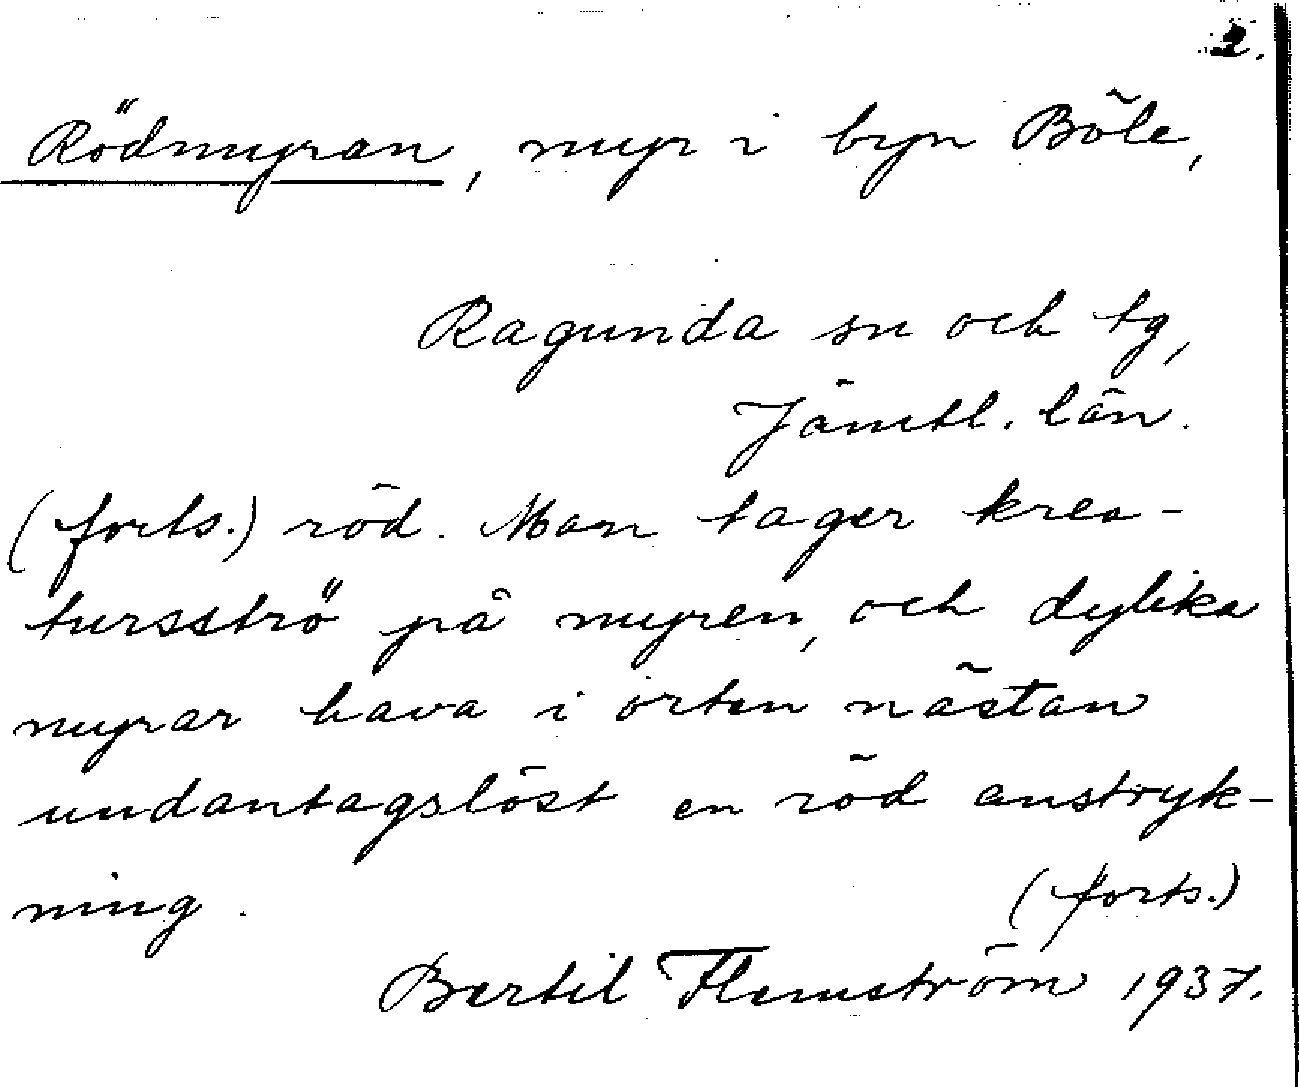 2.
Rödmyran, myr i byn Böle,
Ragunda sn och tg,
Jämtl. län.
(forts.) röd. Man tager krea-
tursströ på myren, och dylika
myrar hava i orten nästan
undantagslöst en röd anstryk-
ning. (forts.)
Bertil Flemström 1937.